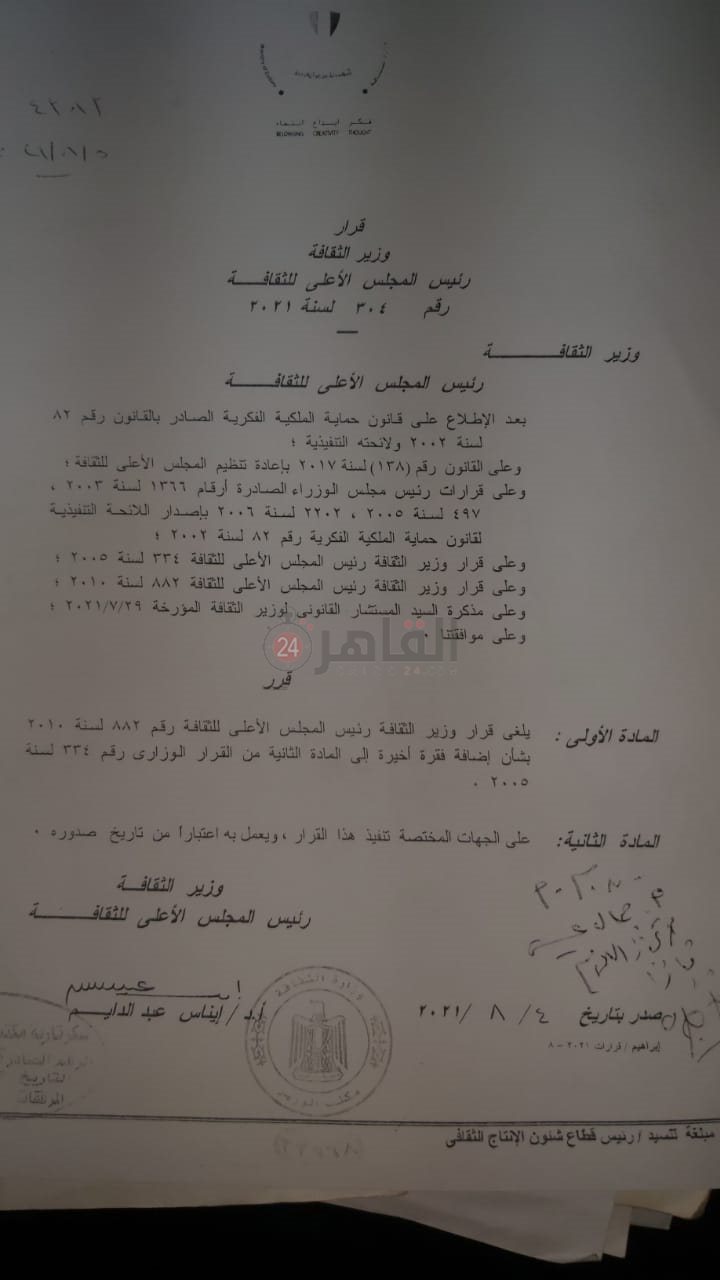 ٤٣٨٢
فكر ابداع انتماء
BELONGING CREATIVITY THOUGHT
قرار
وزير الثقافة
رئيس المجلس الأعلى للثقافــــــة
رقم ٣٠٤ لسنة ٢٠٢١
وزير الثقافـــــــــــة
رئيس المجلس الأعلى للثقافـــــــة
بعد الإطلاع على قانون حماية الملكية الفكرية الصادر بالقانون رقم ٨٢
لسنة ٢٠٠٢ ولائحته التنفيذية ؛
وعلى القانون رقم (١٣٨) لسنة ٢٠١٧ بإعادة تنظيم المجلس الأعلى للثقافة ؛
وعلى قرارات رئيس مجلس الوزراء الصادرة أرقام ١٣٦٦ لسنة ٢٠٠٣ ،
٤٩٧ لسنة ٢٠٠٥ ، ٢٢٠٢ لسنة ٢٠٠٦ بإصدار اللائحة التنفيذية
لقانون حماية الملكية الفكرية رقم ٨٢ لسنة ٢٠٠٢ ؛
وعلى قرار وزير الثقافة رئيس المجلس الأعلى للثقافة ٣٣٤ لسنة ٢٠٠٥ ؛
وعلى قرار وزير الثقافة رئيس المجلس الأعلى للثقافة ٨٨٢ لسنة ٢٠١٠ ؛
وعلى مذكرة السيد المستشار القانونى لوزير الثقافة المؤرخة ٢٠٢١/٧/٢٩ ؛
وعلى موافقتنا ٠
القاهرة 24
قرر
المادة الأولى : يلغى قرار وزير الثقافة رئيس المجلس الأعلى للثقافة رقم ٨٨٢ لسنة ٢٠١٠
بشأن إضافة فقرة أخيرة إلى المادة الثانية من القرار الوزارى رقم ٣٣٤ لسنة
٢٠٠٥ .
المادة الثانية: على الجهات المختصة تنفيذ هذا القرار ، ويعمل به اعتباراً من تاريخ صدوره ٠
وزير الثقافـــة
رئيس المجلس الأعلى للثقافـــــــة
أ.د / إيناس عبد الدايـــم
وزارة الثقافة
مكتب الوزير
صدر بتاريخ ٤ / ٨ / ٢٠٢١
إبراهيم / قرارات ٢٠٢١ – ٨
التاريخ
المرفقات
مبلغة للسيد / رئيس قطاع شئون الإنتاج الثقافى